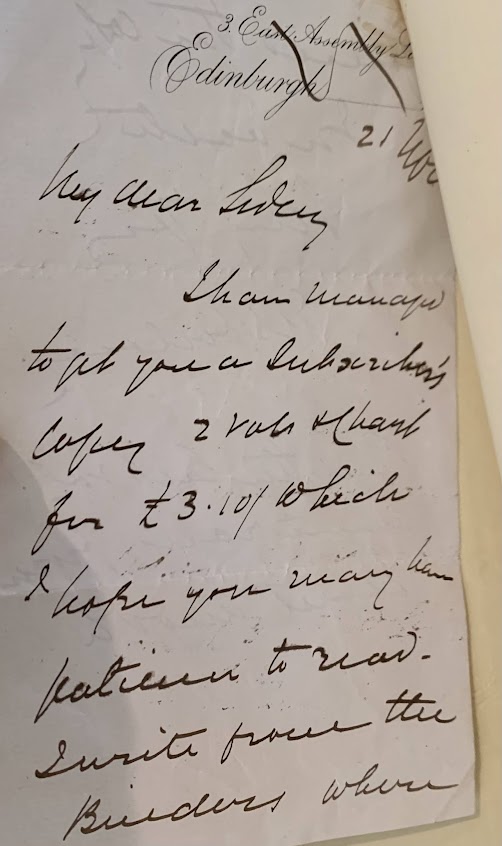 3. East Assembly
Edinburgh
21 Nov
My dear Sidney
I have managed
to get you a Subscriber's
Copy 2 Vols & Chart
for £3.10/ which
I hope you may have
patience to read.
I write from the
Binders where